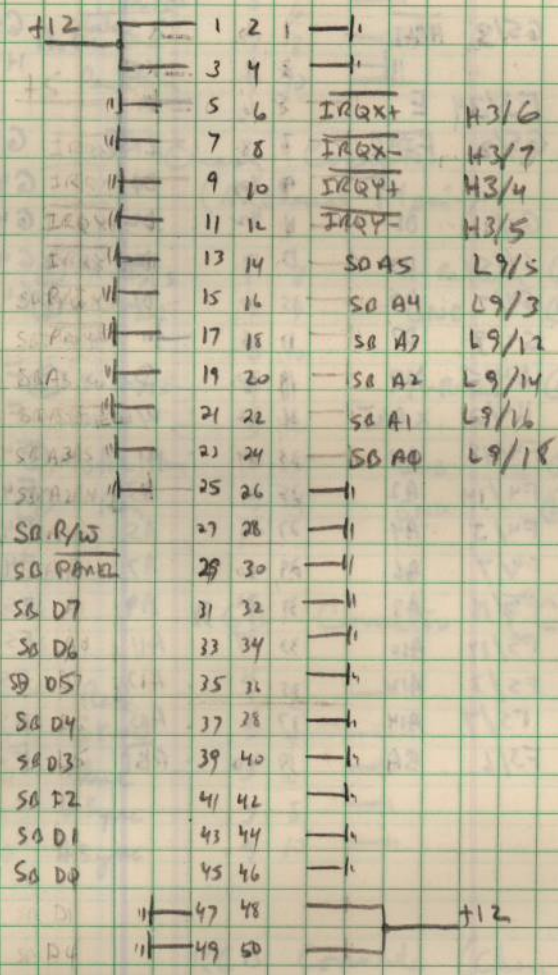 +12 1 2 1
3 4
5 6 IRQX+ H3/6
7 8 IRQX- H3/7
9 10 IRQY+ H3/4
11 12 IRQY- H3/5
13 14 SB A5 L9/5
15 16 SB A4 L9/3
17 18 SB A3 L9/12
19 20 SB A2 L9/14
21 22 SB A1 L9/16
23 24 SB A0 L9/18
25 26
SB R/W 27 28
SB PANEL 29 30
SB D7 31 32
SB D6 33 34
SB D5 35 36
SB D4 37 38
SB D3 39 40
SB D2 41 42
SB D1 43 44
SB D0 45 46
47 48 +12
49 50